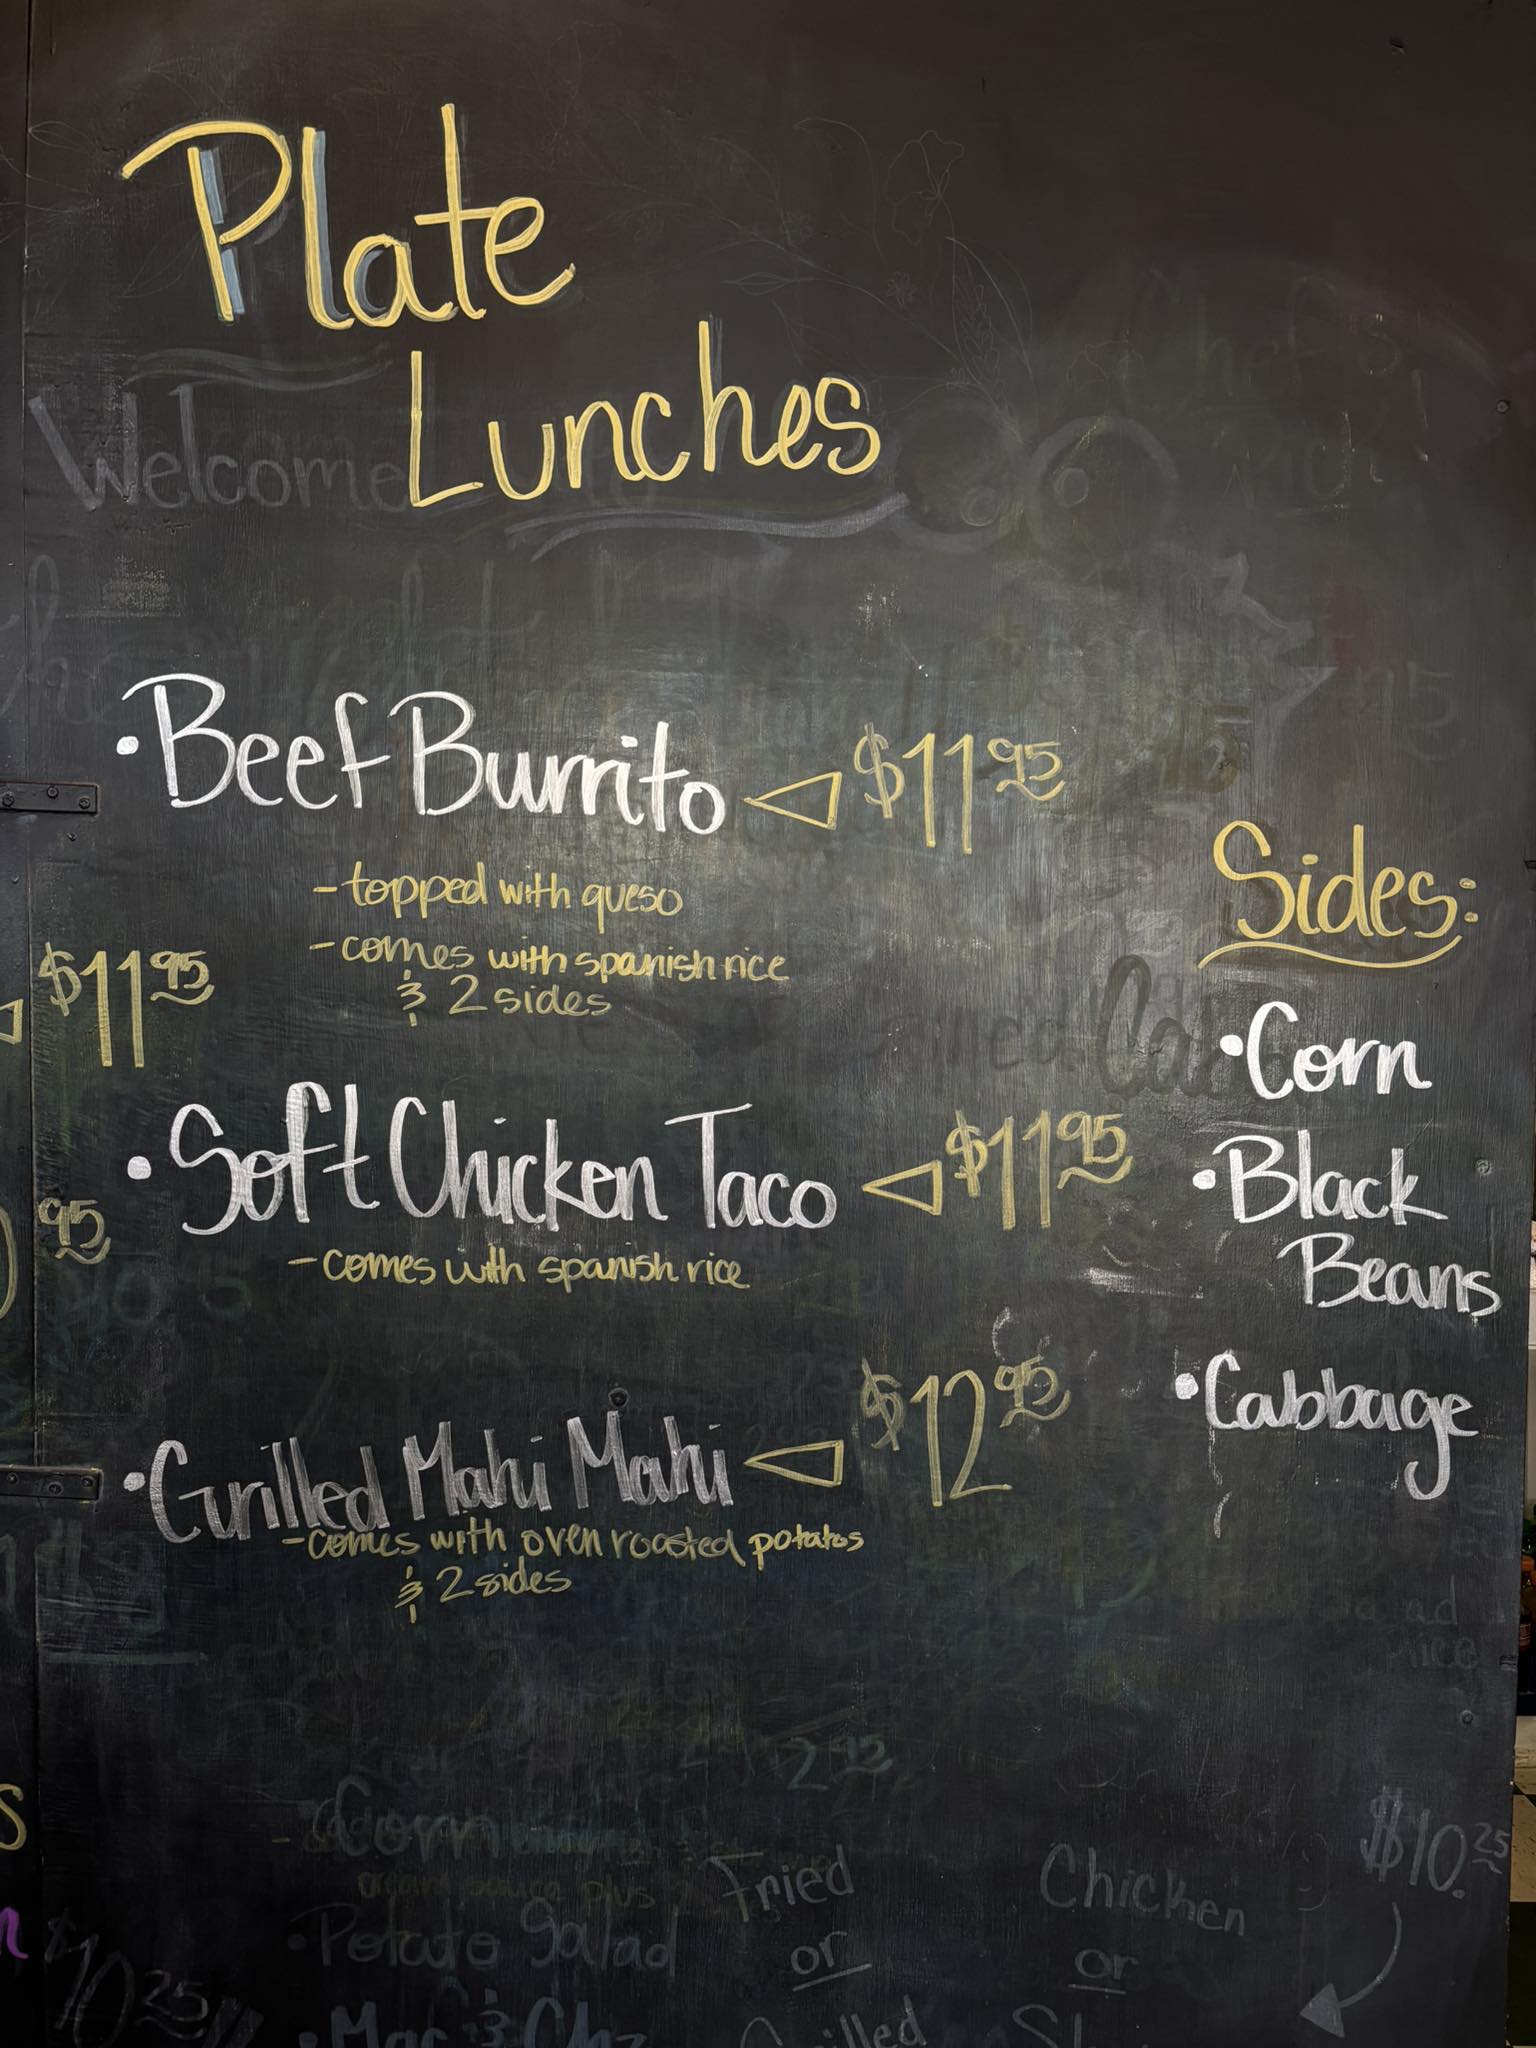 Plate
Lunches
Welcome
• Beef Burrito $11 95
- topped with queso
- comes with spanish rice
& 2 sides
$11 95
• Soft Chicken Taco $11 95
- comes with spanish rice
95
• Grilled Mahi Mahi $12 95
- comes with oven roasted potatos
& 2 sides
Sides:
• Corn
• Black
Beans
• Cabbage
$10.25
Corn
Fried
Chicken
• Potato Salad
or
or
$10 25
• Mac &